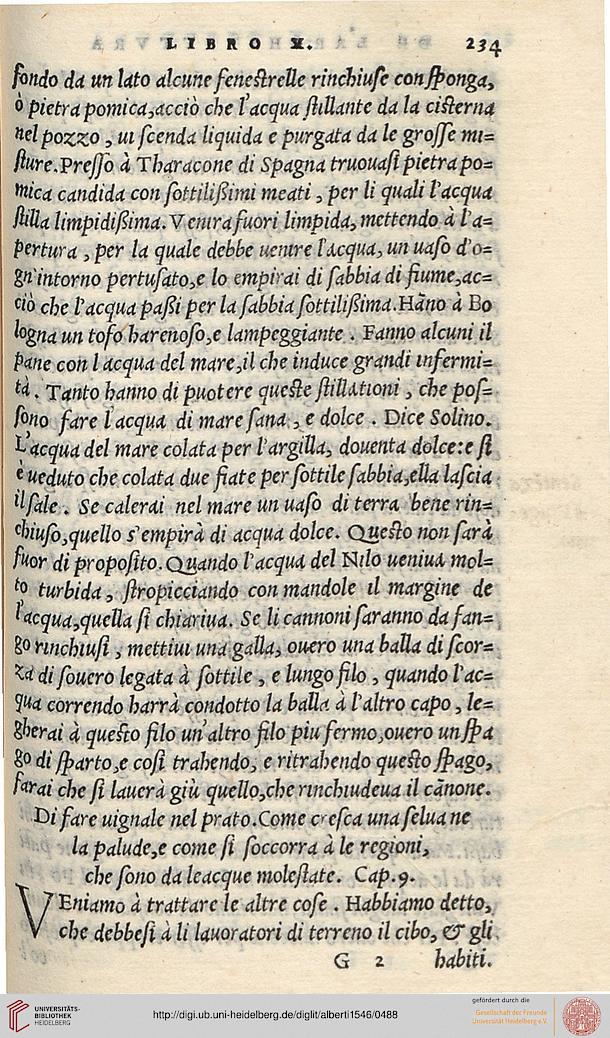 LIBRO X. 234
fondo da un lato alcune fenestrelle rinchiuse con sponga,
ò pietra pomica, acciò che l'acqua stillante da la cisterna
nel pozzo, ui scenda liquida e purgata da le grosse mi=
sture. Presso à Tharacone di Spagna truouasi pietra po=
mica candida con sottilißimi meati, per li quali l'acqua
stilla limpidißima. Venira fuori limpida, mettendo à l'a=
pertura, per la quale debbe uenire l'acqua, un uaso d'o=
gn'intorno pertusato, e lo empirai di sabbia di fiume, ac=
ciò che l'acqua paßi per la sabbia sottilißima. Hãno à Bo
logna un tofo harenoso, e lampeggiante. Fanno alcuni il
pane con l acqua del mare, il che induce grandi infermi=
tà. Tanto hanno di puotere queste stillationi, che pos=
sono fare l'acqua di mare sana, e dolce. Dice Solino.
L'acqua del mare colata per l'argilla, douenta dolce: e si
è ueduto che colata due fiate per sottile sabbia, ella lascia
il sale. Se calerai nel mare un uaso di terra bene rin=
chiuso, quello s'empirà di acqua dolce. Questo non sarà
fuor di proposito. Quando l'acqua del Nilo ueniua mol=
to turbida, stropicciando con mandole il margine de
l'acqua, quella si chiariua. Se li cannoni saranno da fan=
go rinchiusi, mettiui una galla, ouero una balla di scor=
za di souero legata à sottile, e lungo filo, quando l'ac=
qua correndo harrà condotto la balla à l'altro capo, le=
gherai à questo filo un'altro filo piu fermo, ouero un spa
go di sparto, e cosi trahendo, e ritrahendo questo spago,
farai che si lauerà giù quello, che rinchiudeua il cãnone.
Di fare uignale nel prato. Come cresca una selua ne
la palude, e come si soccorra à le regioni,
che sono da leacque molestate. Cap. 9.
VEniamo à trattare le altre cose. Habbiamo detto,
che debbesi à li lauoratori di terreno il cibo, & gli
G 2 habiti.
UNIVERSITÄTS-
BIBLIOTHEK
HEIDELBERG
http://digi.ub.uni-heidelberg.de/diglit/alberti1546/0488
gefördert durch die
Gesellschaft der Freunde
Universität Heidelberg e.V.